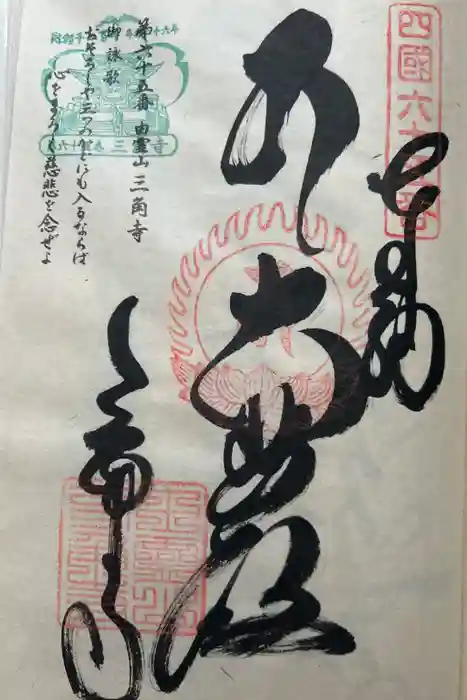 四國六十五番
奉納
大悲殿
三角寺
第六十五番 由霊山 三角寺
御詠歌
おそろしや三つのかどにも入るならば
心をまろく慈悲を念ぜよ